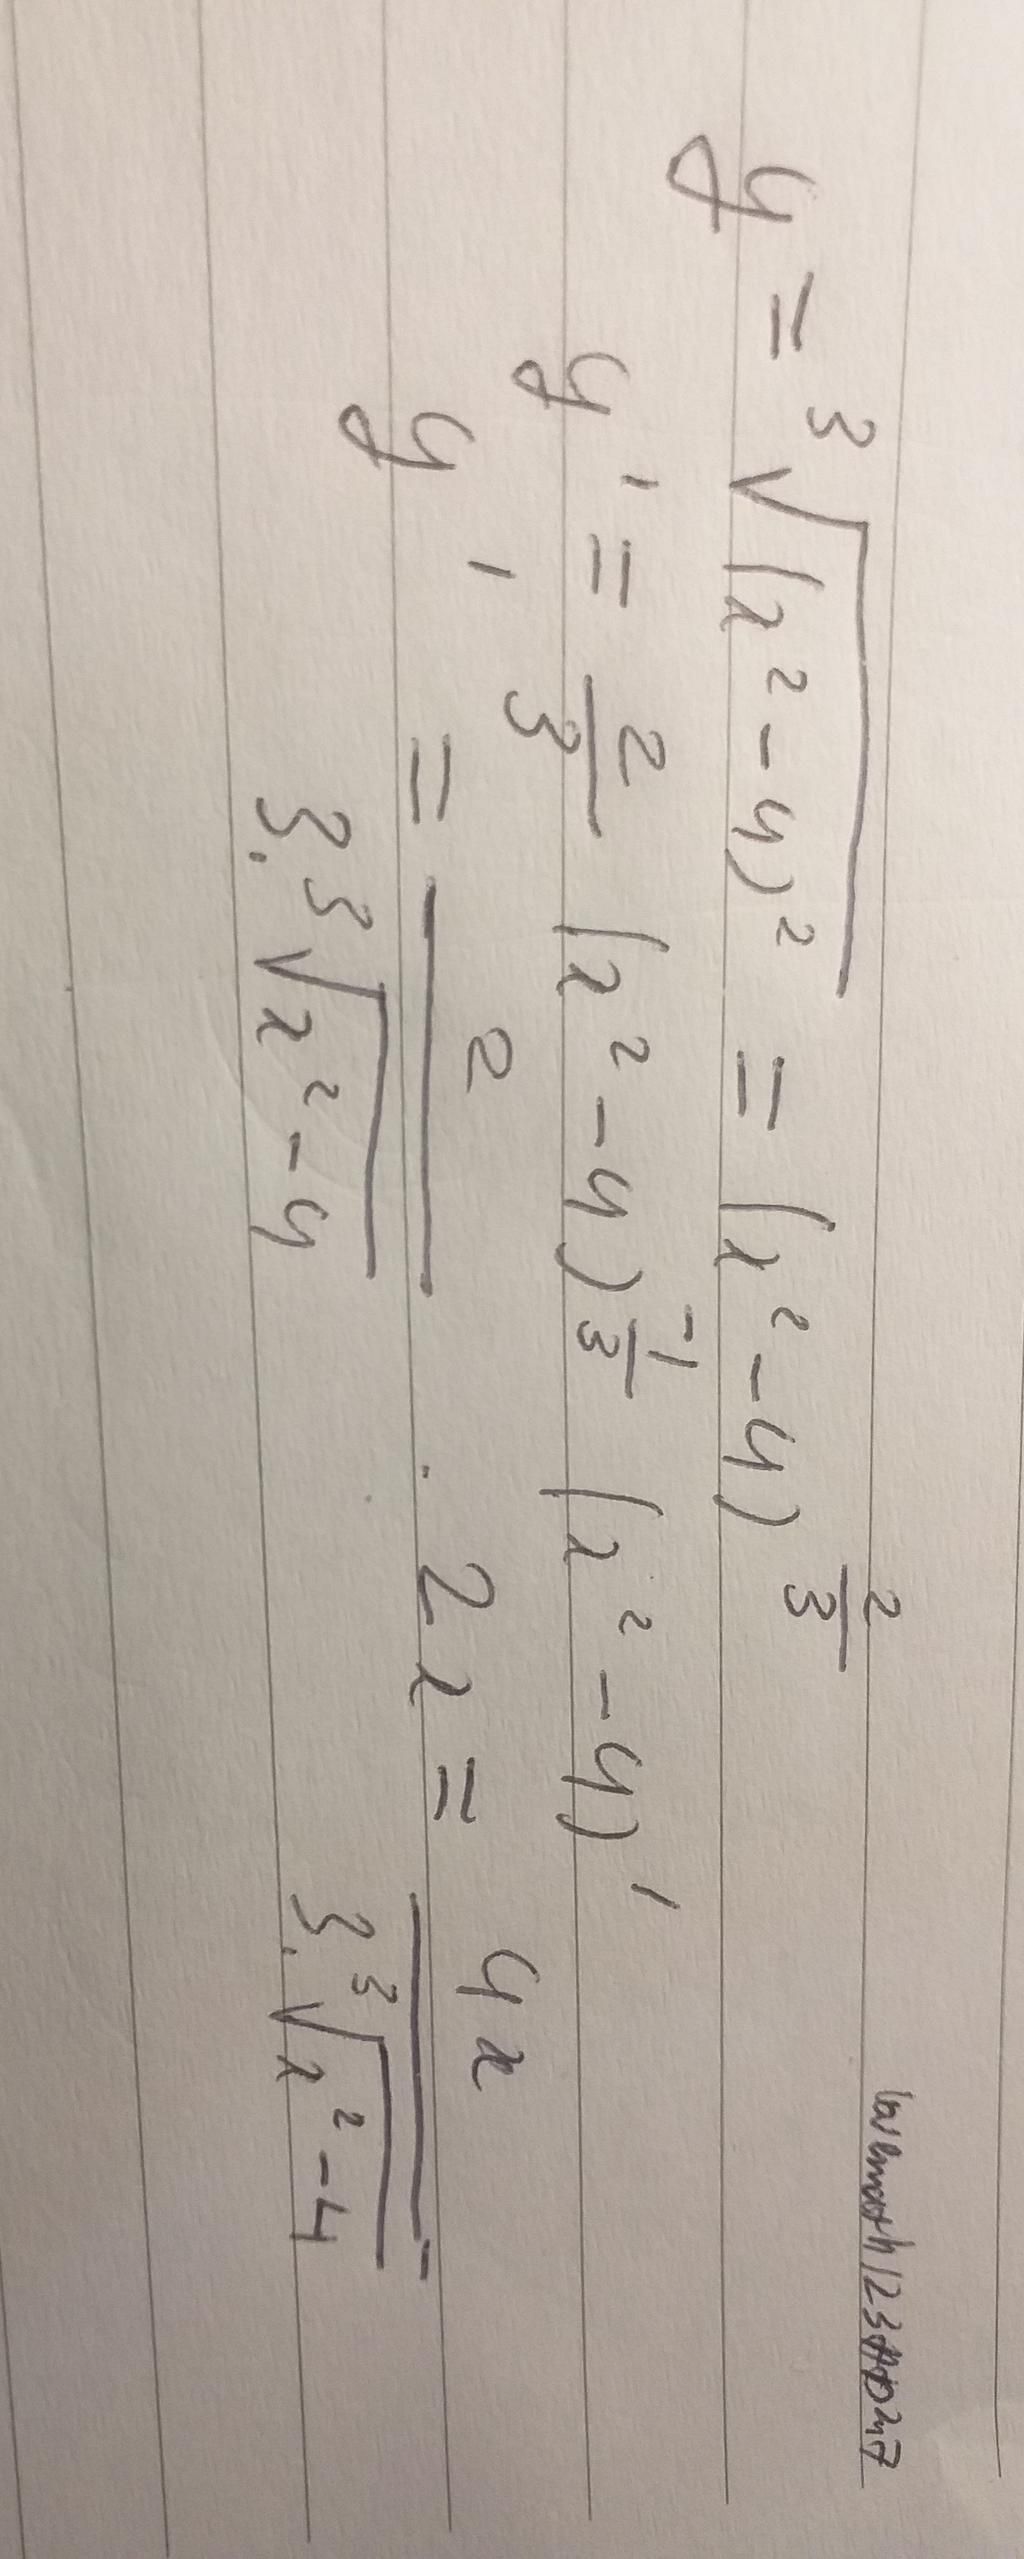 y = ³√(x² - 4)² = (x² - 4)^(2/3)
y' = 2/3 (x² - 4)^(-1/3) (x² - 4)'
y' = 2/(3.³√x² - 4) . 2x = 4x/(3.³√x² - 4)